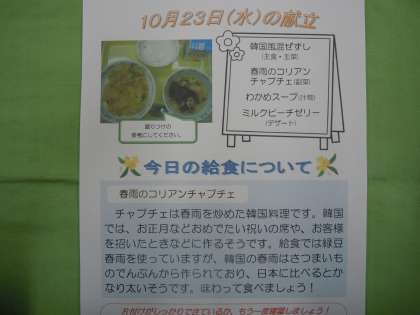 10月23日（水）の献立
韓国風混ぜずし
（主食・主菜）
春雨のコリアン
チャプチェ（副菜）
わかめスープ（汁物）
ミルクピーチゼリー
（デザート）
盛りつけの
参考にしてください。
今日の給食について
春雨のコリアンチャプチェ
チャプチェは春雨を炒めた韓国料理です。韓国
では、お正月などおめでたい祝いの席や、お客様
を招いたときなどに作るそうです。給食では緑豆
春雨を使っていますが、韓国の春雨はさつまいも
のでんぷんから作られており、日本に比べるとか
なり太いそうです。味わって食べましょう！
片付けがしっかりできているか、もう一度確認しましょう！